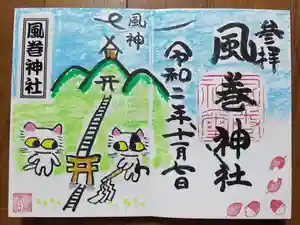 参拝
風巻神社
令和二年十一月七日
風神
風巻神社